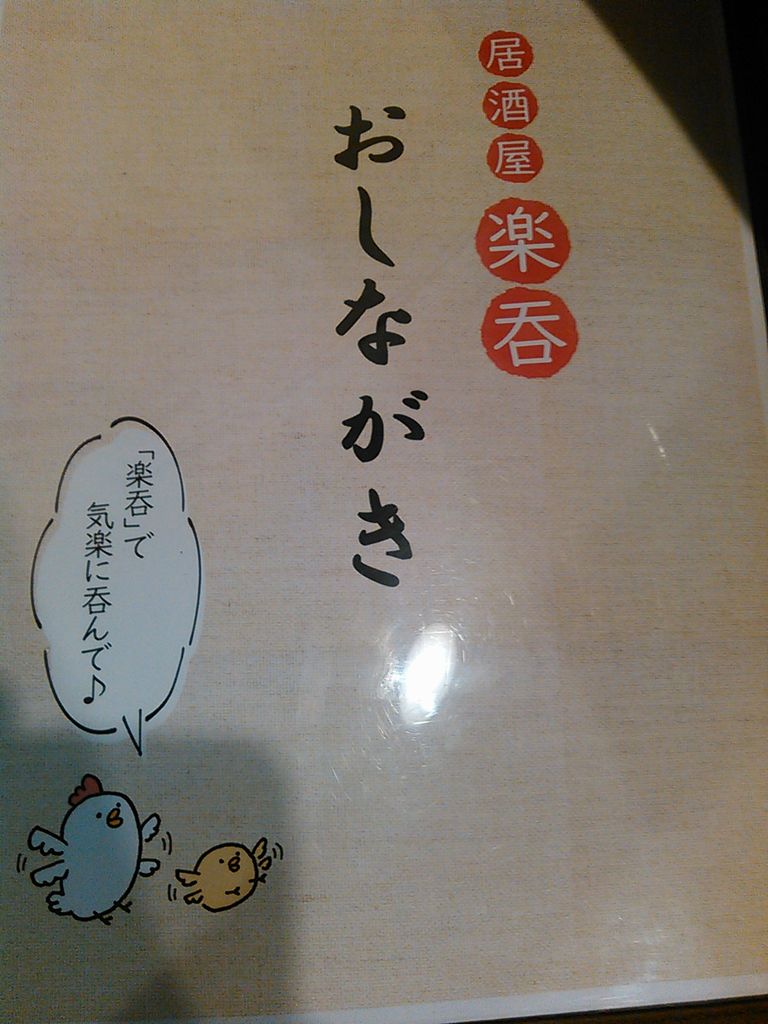 居酒屋 楽呑
おしながき
「楽呑」で
気楽に呑んで♪